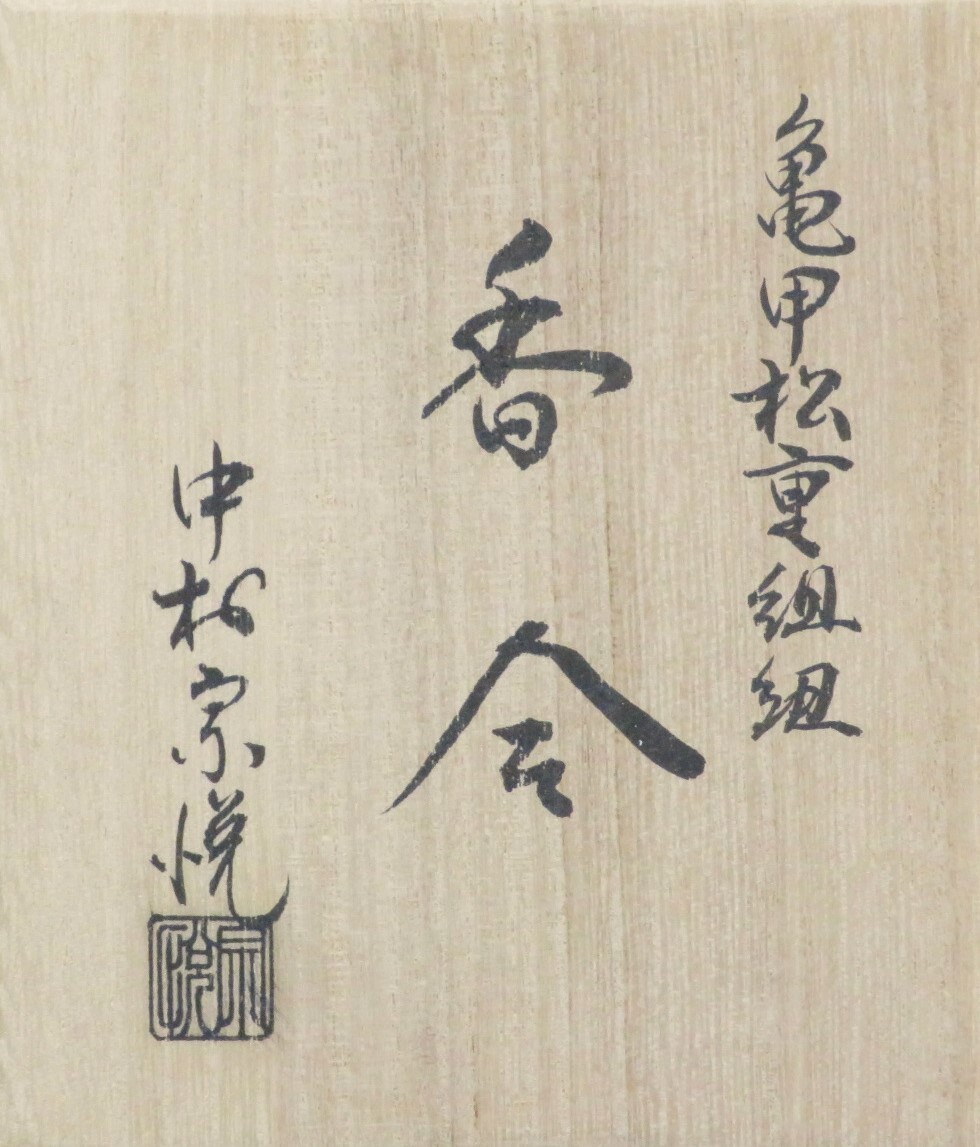 亀甲松重組紐
香合
中村宗悦
宗悦